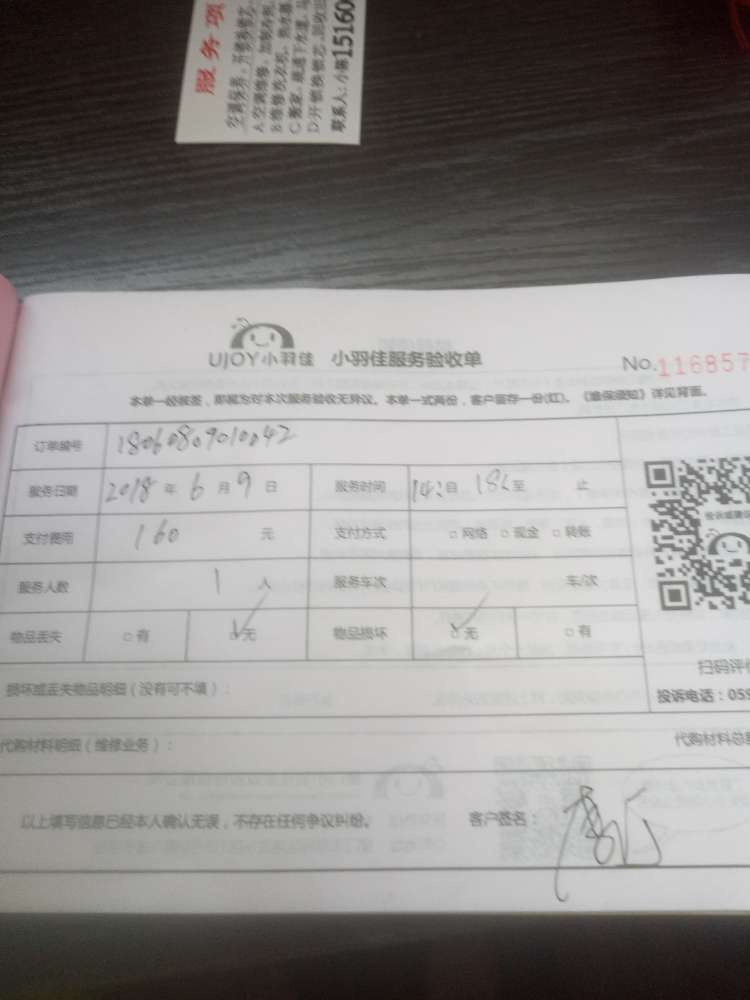 服务项
空调保养、开锁换锁芯、
A空调维修、加制冷剂、
B维修洗衣机、热水器
C搬家、疏通下水道、马
D开锁换锁芯、回收旧
联系人：小蒋15160
UJOY小羽佳 小羽佳服务验收单 No.116857
本单一经核签，即视为对本次服务验收无异议。本单一式两份，客户留存一份(红)。《维保须知》详见背面。
订单编号 18060809010042
服务日期 2018 年 6 月 9 日 服务时间 自 至 止
支付费用 160 元 支付方式 □网络 □现金 □转账
服务人数 1 人 服务车次 车/次
物品丢失 □有 ☑无 物品损坏 ☑无 □有
扫码评价
损坏或丢失物品明细（没有可不填）： 投诉电话：059
代购材料明细（维修业务）： 代购材料总额
以上填写信息已经本人确认无误，不存在任何争议纠纷。 客户签名：